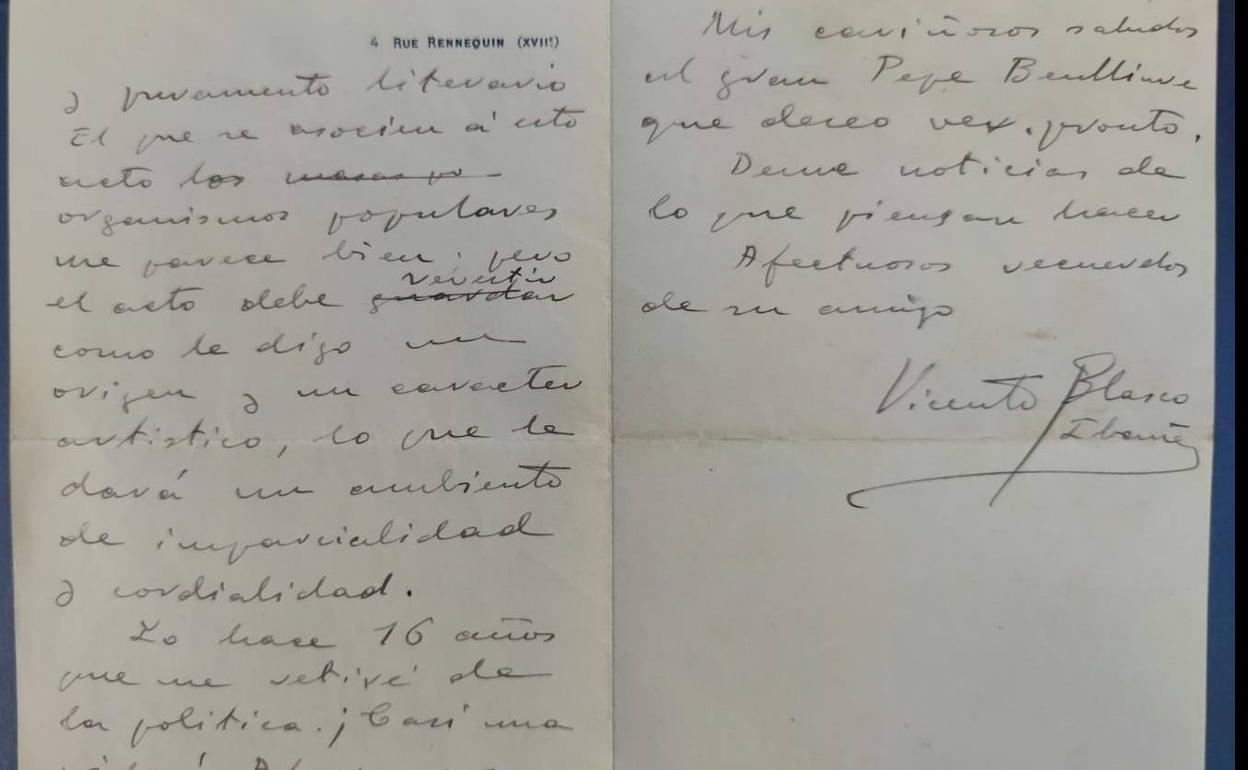 4 RUE RENNEQUIN (XVIIe)
y puramente literario
El que se asocien á este
acto los masas po
organismos populares
me parece bien; pero
revestir
el acto debe guardar
como le digo un
origen y un caracter
artistico, lo que le
dará un ambiente
de imparcialidad
y cordialidad.
Yo hace 16 años
que me retiré de
la politica. ¡Casi una
Mis cariñosos saludos
al gran Pepe Benlliure
que deseo ver pronto.
Deme noticias de
lo que piensan hacer
Afectuosos recuerdos
de su amigo
Vicente Blasco
Ibañez